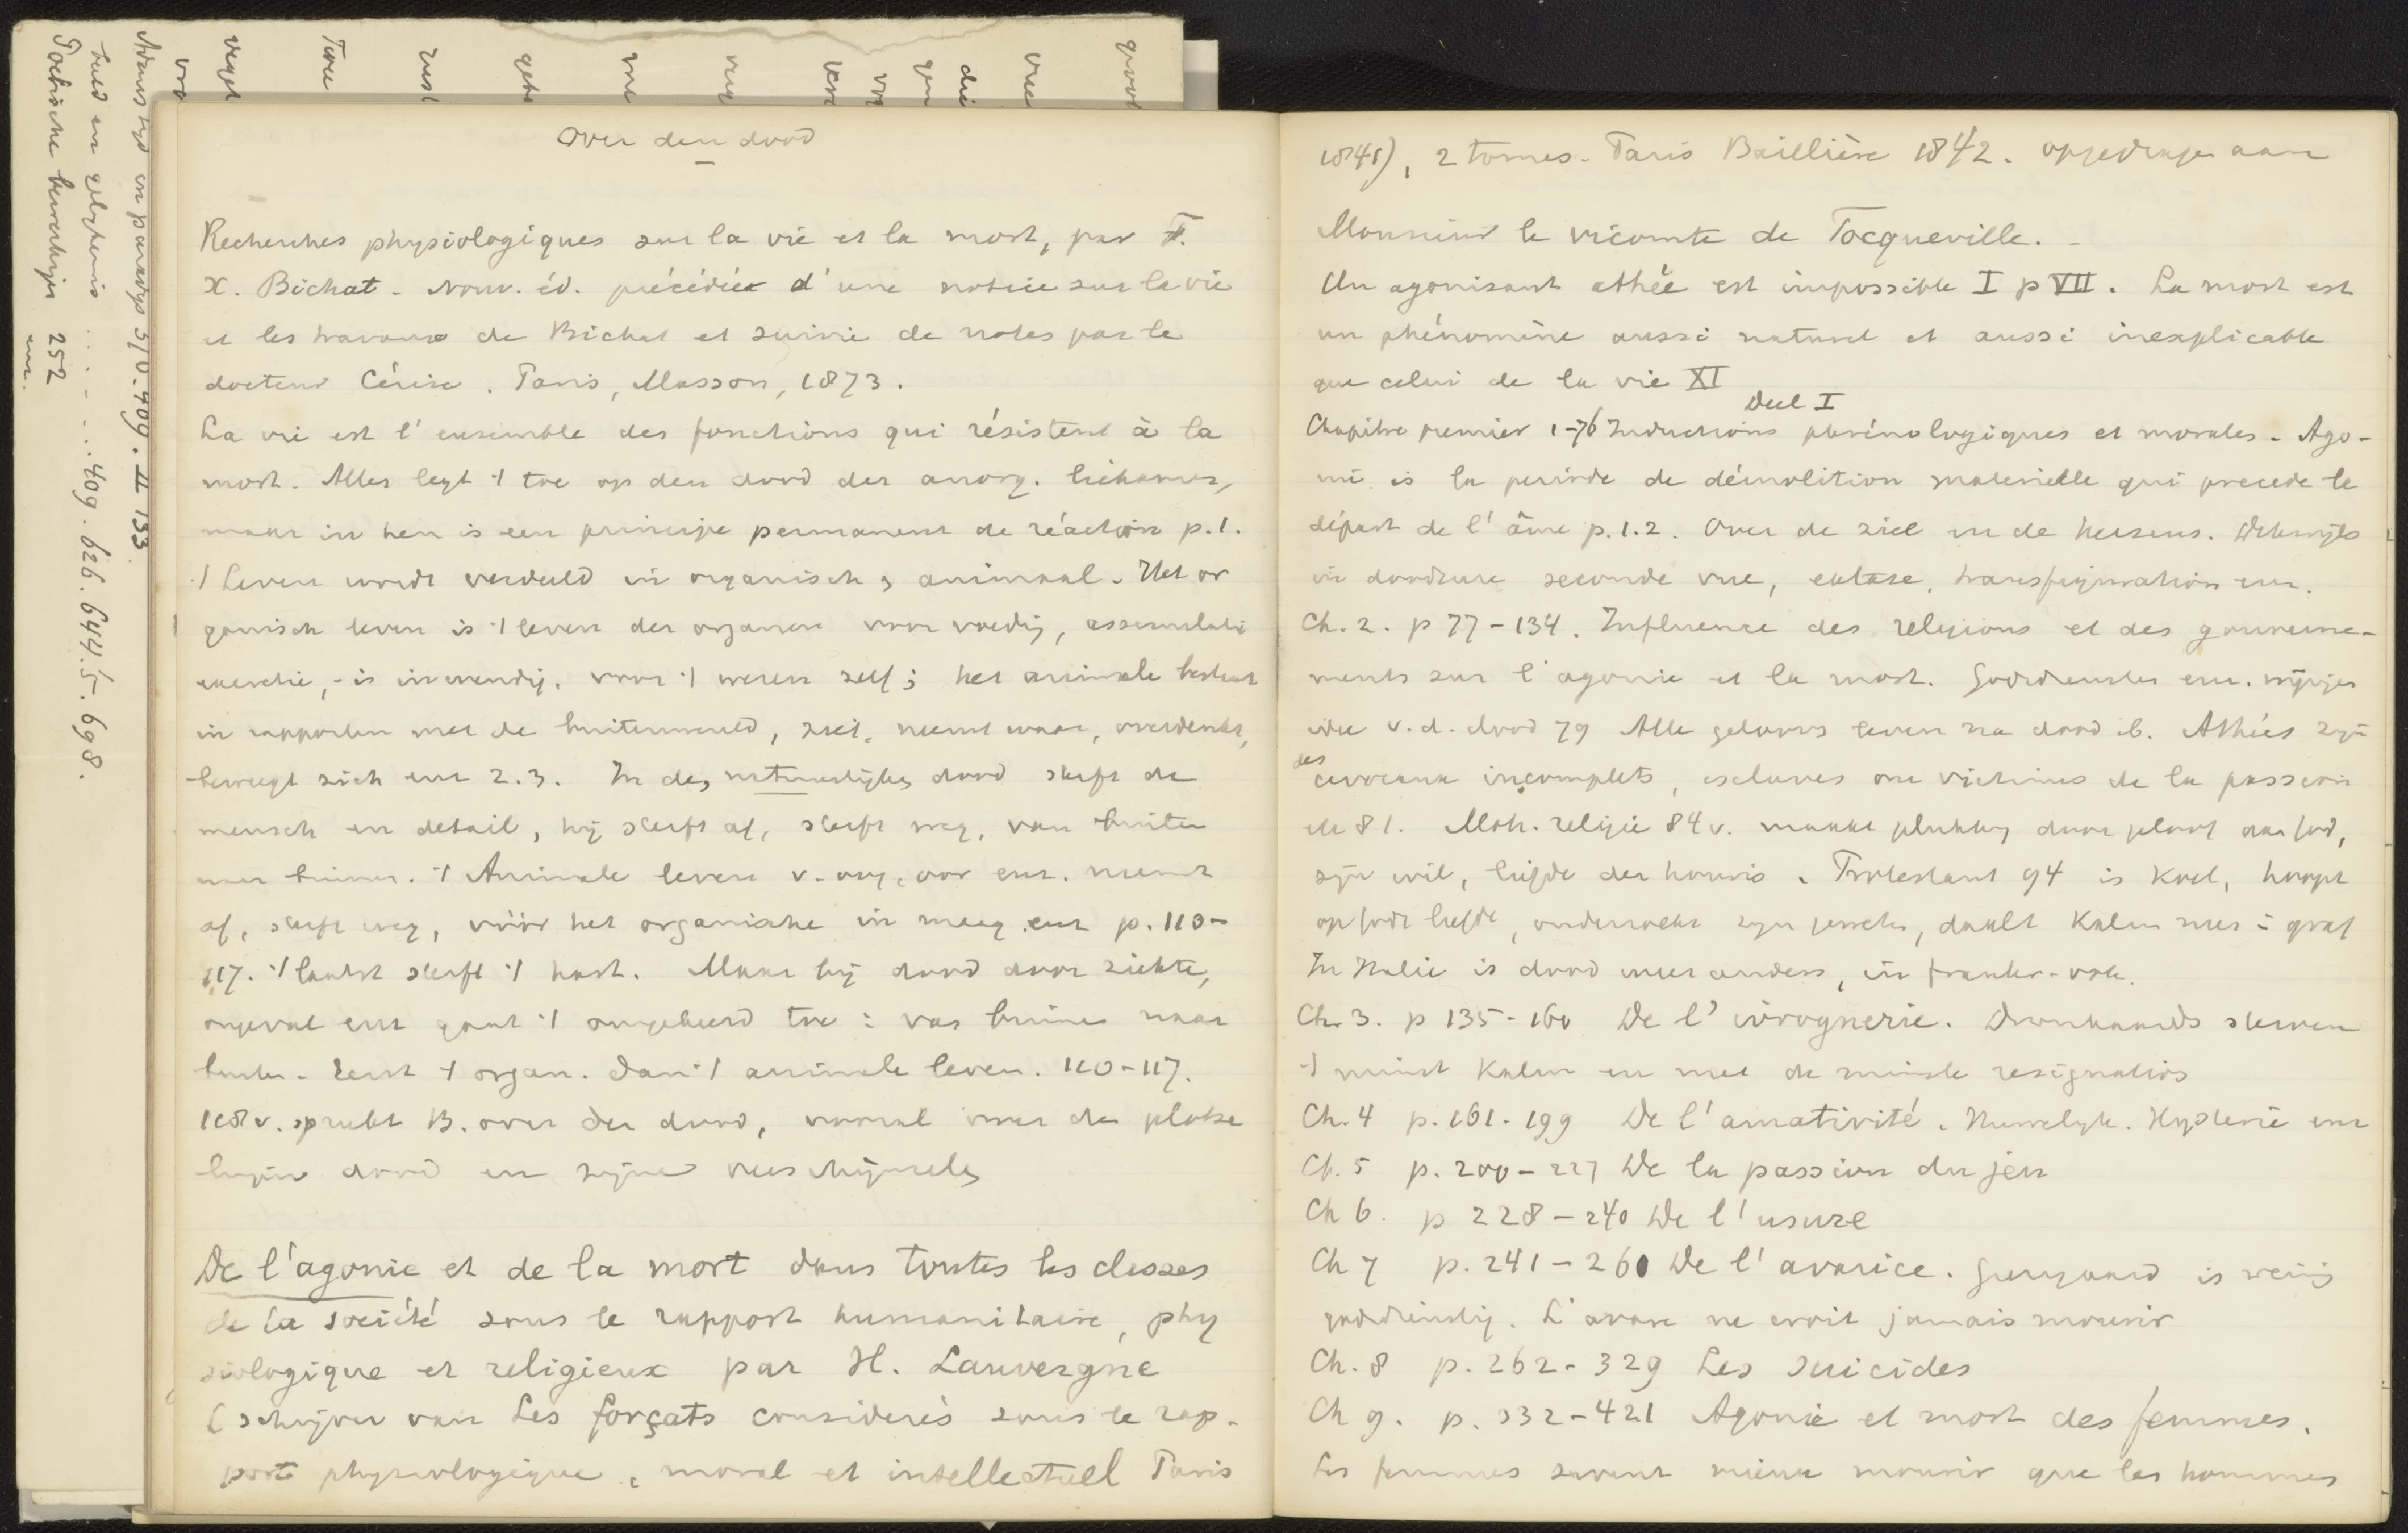 Over den dood
Recherches physiologiques sur la vie et la mort, par F.
X. Bichat. Nouv. éd. précédée d'une notice sur la vie
et les travaux de Bichat et suivie de notes par le
docteur Cérise. Paris, Masson, 1873.
La vie est l'ensemble des fonctions qui résistent à la
mort. Alles legt 't toe op den dood der anorg. lichamen,
maar in hen is een principe permanent de réaction p.1.
't Leven wordt verdeeld in organisch en animaal. Het or
ganisch leven is 't leven der organen voor voeding, assimilatie
excretie, is inwendig, voor 't wezen zelf; het animale bestaat
in rapporten met de buitenwereld, ziet, neemt waar, overdenkt,
beweegt zich enz 2.3. In den natuurlijken dood sterft de
mensch en detail, hij sterft af, sterft weg, van buiten
naar binnen. 't Animale leven v. oog, oor enz. neemt
af, sterft weg, vóór het organische in maag enz p. 110-
117. 't laatst sterft 't hart. Maar bij dood door ziekte,
ongeval enz gaat 't omgekeerd toe: van binnen naar
buiten. Eerst 't organ. dan 't animale leven. 110-117.
108 v. spreekt B. over den dood, vooral over den plotse
lingen dood en zijne verschijnselen
De l'agonie et de la mort dans toutes les classes
de la société sous le rapport humanitaire, phy
siologique et religieux par H. Lauvergne
(schrijver van Les forçats considerés sous le rap-
port physiologique, moral et intellectuel Paris
1841), 2 tomes. Paris Baillière 1842. opgedragen aan
Monsieur le vicomte de Tocqueville.
Un agonisant athée est impossible I p VII. La mort est
un phénomène aussi naturel et aussi inexplicable
que celui de la vie XI
Deel I
Chapitre premier 1-76 Inductions phrénologiques et morales. Ago-
nie is la periode de démolition materielle qui precede le
départ de l'âme p.1.2. Over de ziel en de hersens. Dikwijls
in doodsure seconde vue, extase, transfiguration enz.
Ch. 2. p 77-134. Influence des religions et des gouverne-
ments sur l'agonie et la mort. Godsdiensten enz. wijzigen
idee v.d. dood 79 Alle geloovs leven na dood ib. Athées zijn
des cerveaux incomplets, esclaves ou victimes de la passion
etc 81. Moh. religie 84 v. maakt gelukkig door geloof aan God,
zijn wil, liefde der houris. Protestant 94 is koel, hoopt
op Gods liefde, onderzoekt zijn geweten, daalt kalm neer i graf
In Italie is dood weer anders, in Frankr. ook.
Ch. 3. p 135-160 De l'ivrognerie. Dronkaards sterven
't minst kalm en met de minste resignatios
Ch. 4 p. 161-199 De l'amativité. Huwelijk. Hysterie enz
Ch. 5 p. 200-227 De la passion du jeu
Ch 6. p 228-240 De l'usure
Ch 7 p. 241-260 De l'avarice. Gierigaard is weinig
godsdienstig. L'avare ne croit jamais mourir
Ch. 8 p. 262-329 Les Suicides
Ch 9. p. 332-421 Agonie et mort des femmes.
Les femmes savent mieux mourir que les hommes
409. II 133
409. 626. 644. 5. 698.
252
enz.